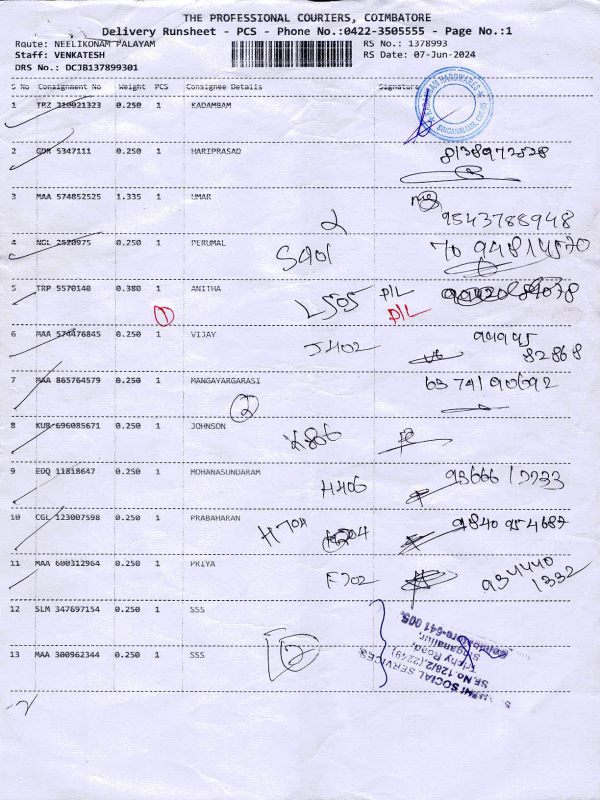 THE PROFESSIONAL COURIERS, COIMBATORE
Delivery Runsheet - PCS - Phone No.:0422-3505555 - Page No.:1
Route: NEELIKONAM PALAYAM RS No.: 1378993
Staff: VENKATESH RS Date: 07-Jun-2024
DRS No.: DCJB137899301
S No Consignment No Weight PCS Consignee Details Signature
1 TRZ 210021323 0.250 1 KADAMBAM
HARDWARES
SINGANALLUR, CBE-05
2 GDR 5347111 0.250 1 HARIPRASAD 8138972528
3 MAA 574852525 1.335 1 UMAR
2 9543788948
4 NGL 2520975 0.250 1 PERUMAL 70 94814570
S401
5 TRP 5570140 0.380 1 ANITHA
1 L505 P/L
P/L
6 MAA 574476845 0.250 1 VIJAY 94945
J402 82868
7 MAA 865764579 0.250 1 MANGAYARGARASI 6374190692
2
8 KUB 696085671 0.250 1 JOHNSON
K806
9 EDQ 11818647 0.250 1 MOHANASUNDARAM
H406
10 CGL 123007598 0.250 1 PRABAHARAN 9840954687
H704
11 MAA 600312964 0.250 1 PRIYA 934440
F702 1332
12 SLM 347697154 0.250 1 SSS
2
13 MAA 300962344 0.250 1 SSS
SOCIAL SERVICES
SF.No.128/2,(2249)
Trichy Road,
Singanallur,
Coimbatore-641 005.